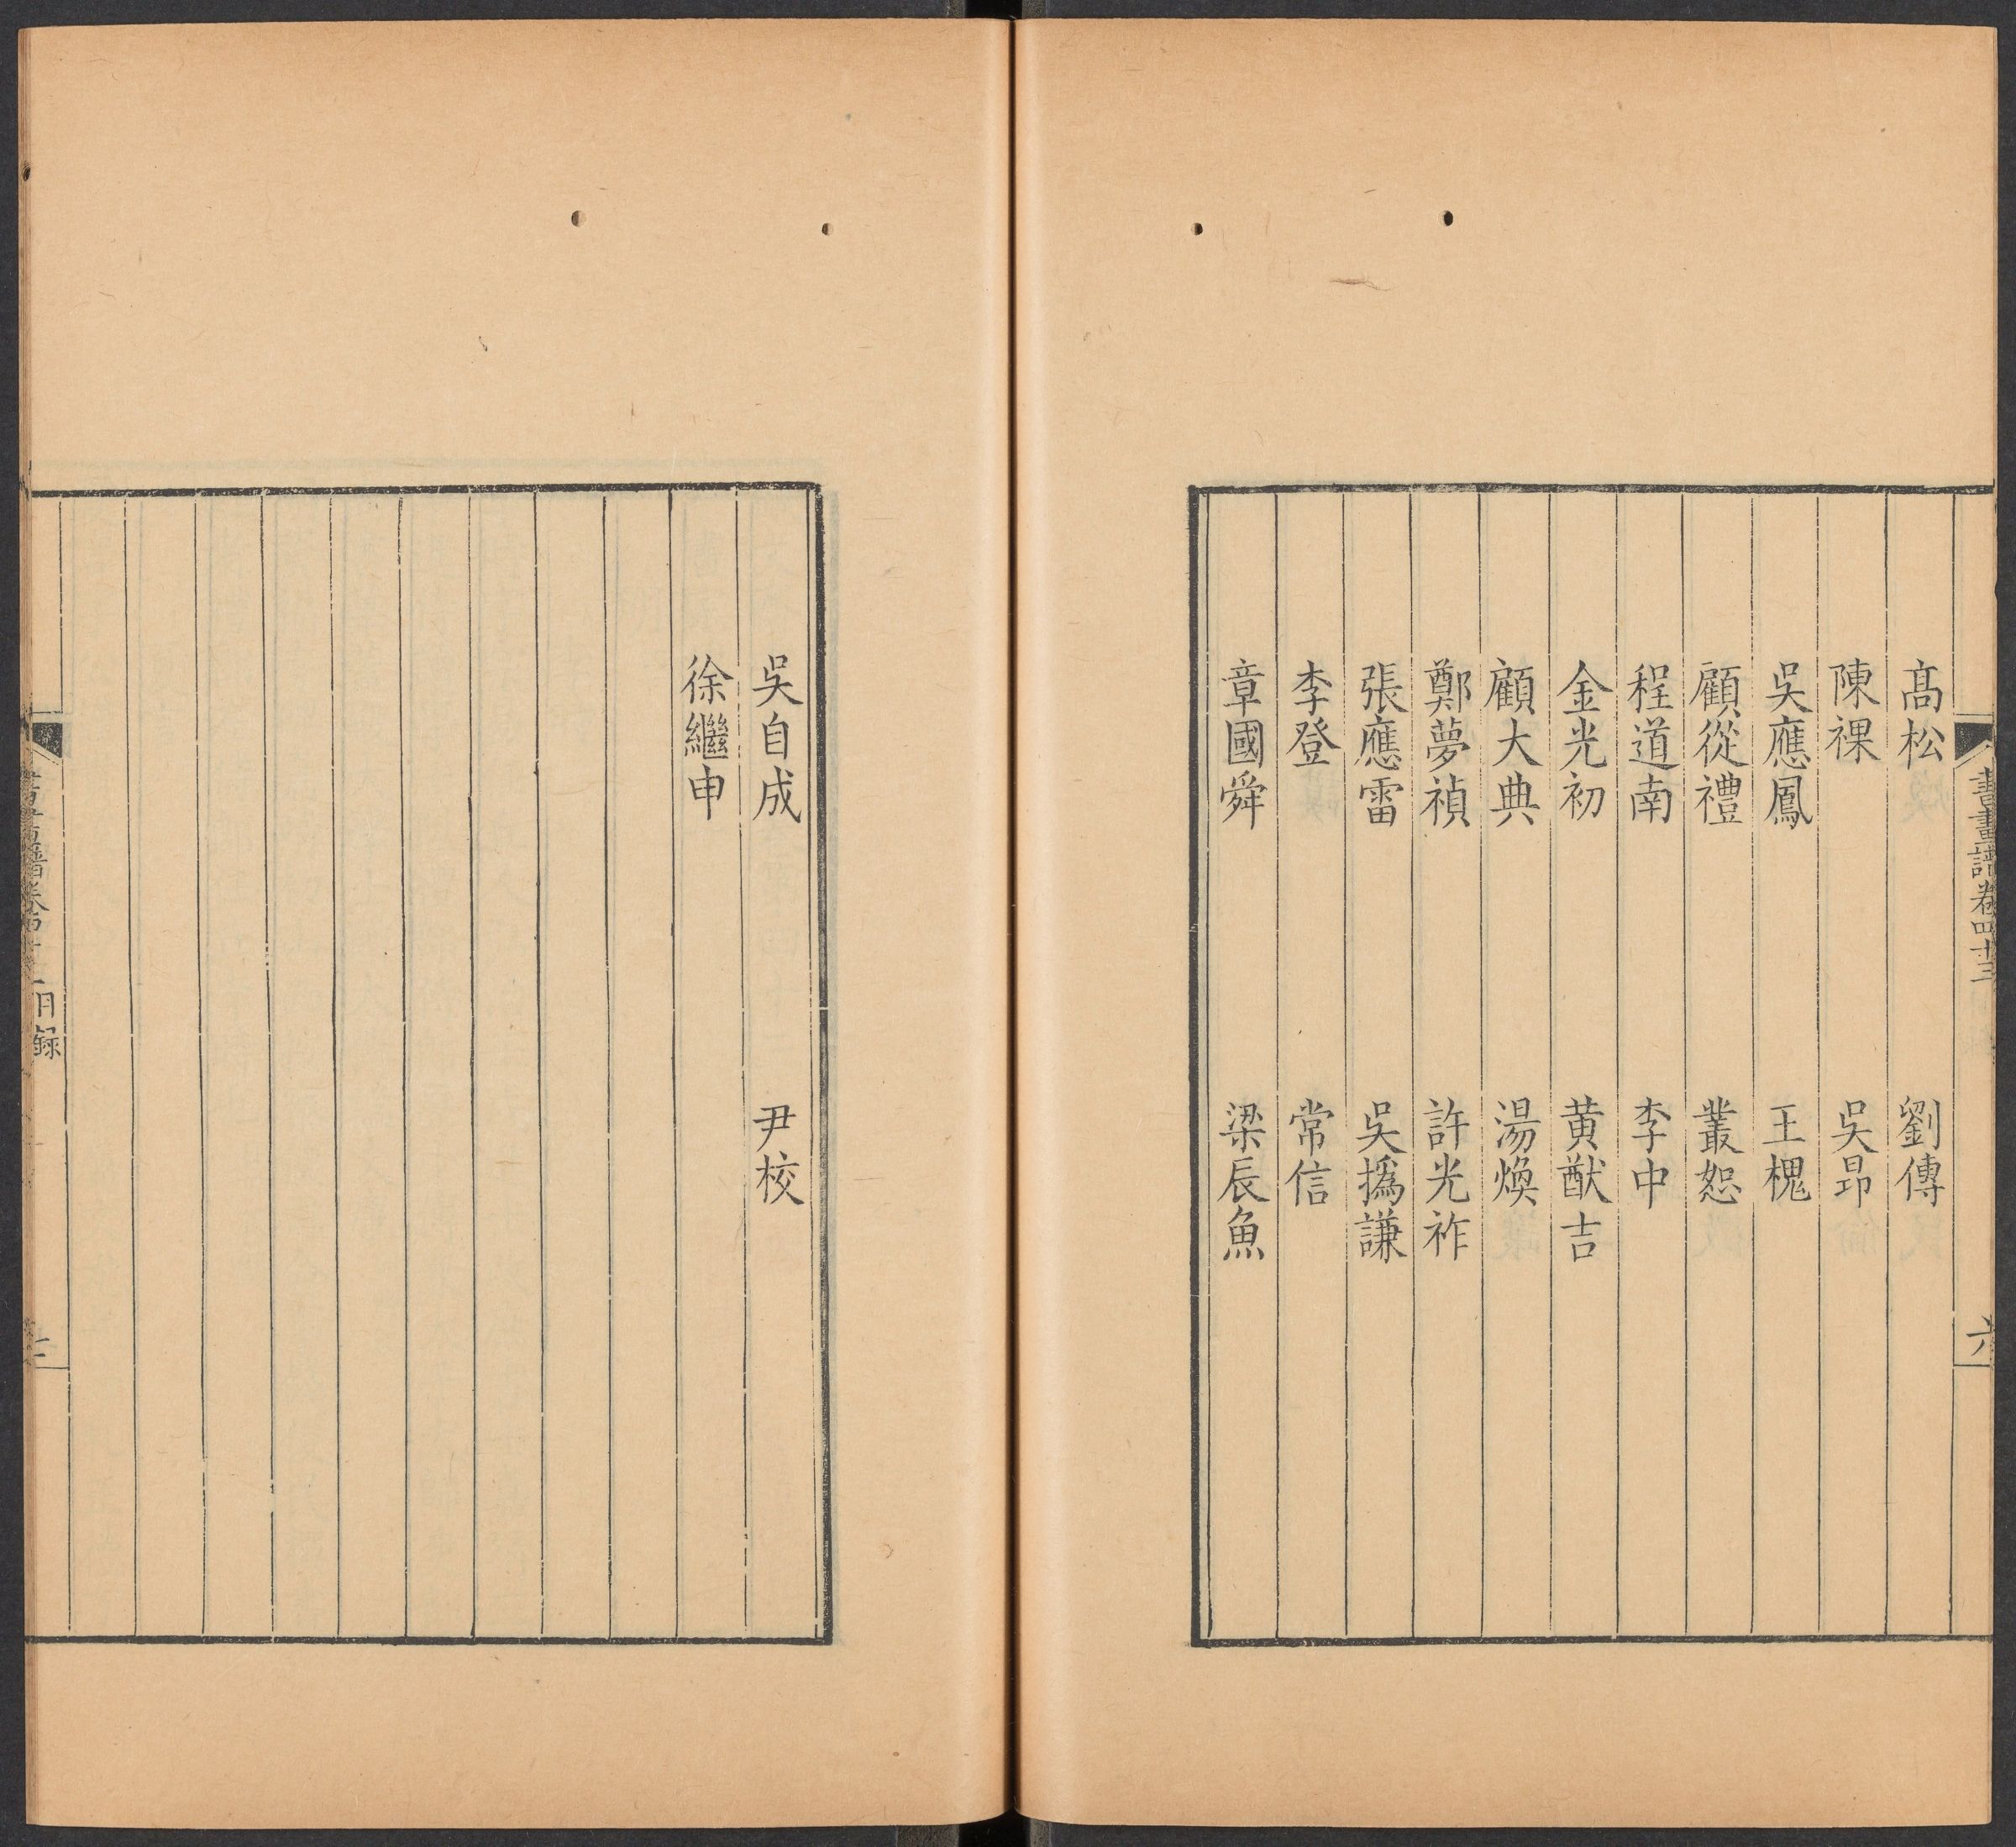 書畫譜卷四十三
六
高松 劉傳
陳祼 吳昂
吳應鳳 王槐
顧從禮 叢恕
程道南 李中
金光初 黄猷吉
顧大典 湯煥
鄭夢禎 許光祚
張應雷 吳撝謙
李登 常信
章國舜 梁辰魚
吳自成 尹校
徐繼申
目錄